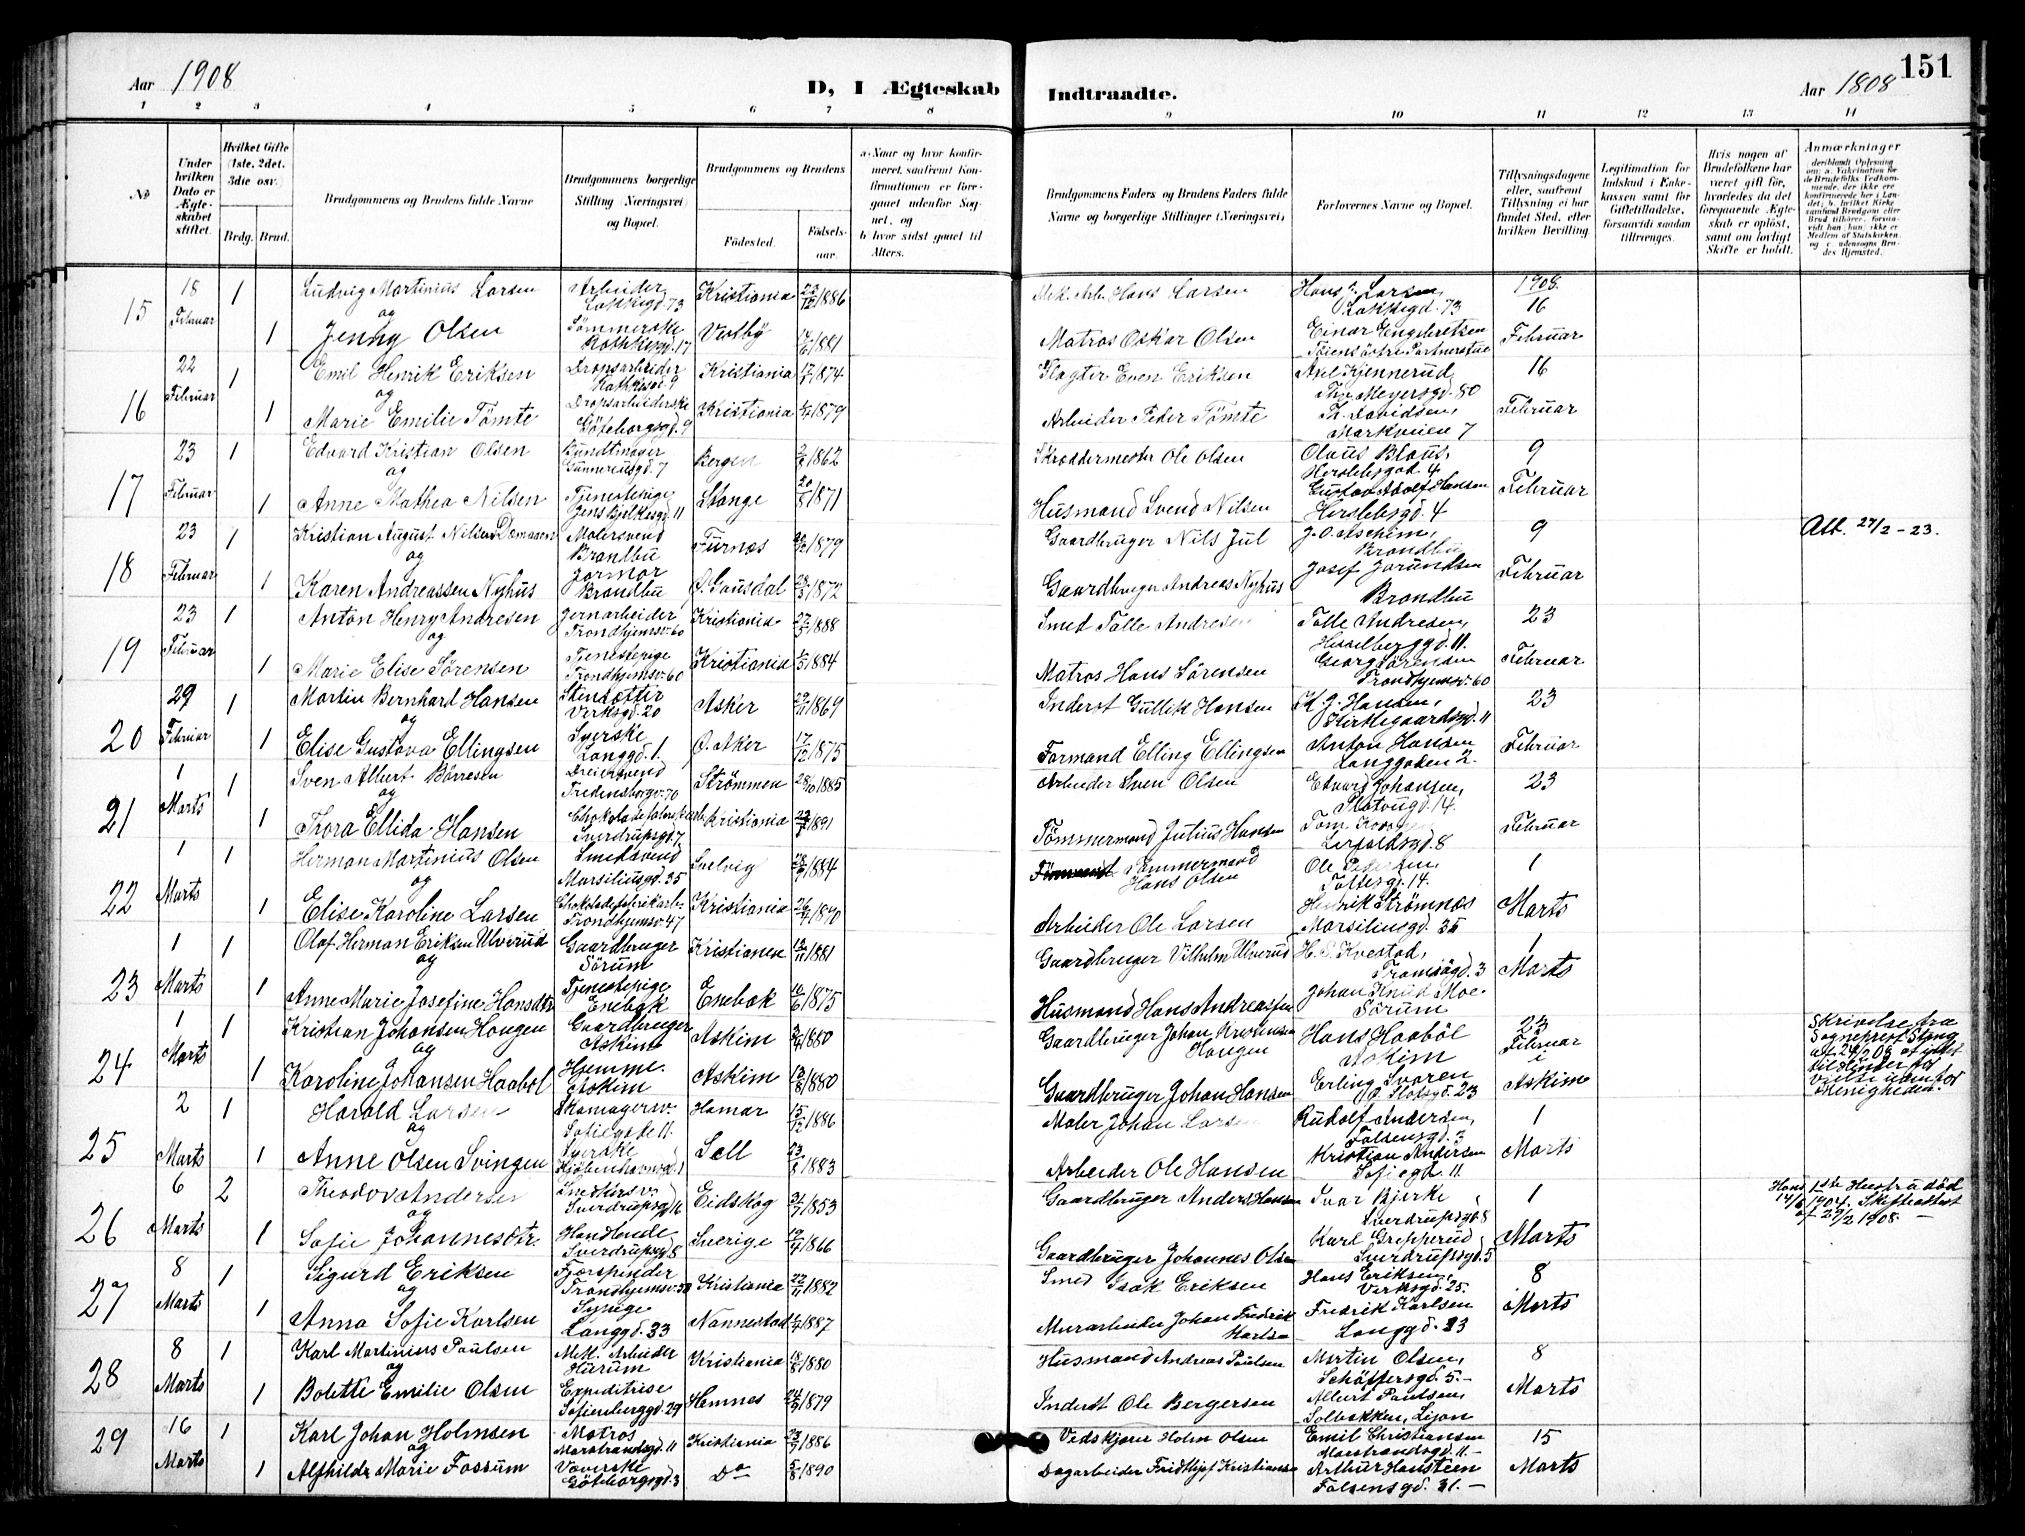 Aar 1908
D, I Ægteskab
1 2 3 4 5 6 7 8
No
Under hvilken Dato er Ægteskabet stiftet.
Hvilket Gifte (1ste, 2det, 3die osv.)
Brdg. Brud.
Brudgommens og Brudens fulde Navne
Brudgommens borgerlige Stilling (Næringsvei) og Bopæl.
Brudgommens og Brudens
Fødested.
Fødselsaar.
a. Naar og hvor konfirmeret, saafremt Konfirmationen er foregaaet udenfor Sognet, og
b. hvor sidst gaaet til Alters.
15 18 Februar 1 Ludvig Martinius Larsen Arbeider Lakkegd. 73 Kristiania 23/12 1886
og
1 Jenny Olsen Sömmerske Rathkesgd. 17 Vestby 1881
16 22 Februar 1 Emil Henrik Eriksen Dropsarbeider Rathkesgd. 9 Kristiania 1874
og
1 Marie Emilie Tömte Dropsarbeiderske Göteborggd. 9 Kristiania 1879
17 23 Februar 1 Edvard Kristian Olsen Bundtmager Gunnerusgd. 7 Bergen 1862
og
1 Anne Mathea Nilsen Tjenestepige Jens Bjelkesgd. 11 Stange 1871
18 23 Februar 1 Kristian August Nilsen Malersvend Brandbu Furnes 1879
og
1 Karen Andreassen Nyhus Jormor Brandbu Ø. Gausdal 1872
19 23 Februar 1 Anton Henry Andresen Jernarbeider Trondhjemsv. 60 Kristiania 1888
og
1 Marie Elise Sörensen Tjenestepige Trondhjemsv. 60 Kristiania 1884
20 29 Februar 1 Martin Bernhard Hansen Stensætter Verksgd. 20 Asker 1869
og
1 Elise Gustava Ellingsen Syerske Langgd. 1. Ø. Aker 17/12 1875
21 1 Marts 1 Sven Albert Börresen Dreiersvend Fredensborgv. 70 Strömmen 28/10 1885
og
1 Thora Ellida Hansen Chokoladefabrikarb. Sverdrupsgd. 7 Kristiania 1891
22 1 Marts 1 Herman Martinius Olsen Smedsvend Marseliusgd. 35 Svelvig 1884
og
1 Elise Karoline Larsen Chokoladefabrikarb. Trondhjemsv. 47 Kristiania 1890
23 1 Marts 1 Olaf Herman Eriksen Ulverud Gaardbruger Sörum Kristiania 1881
og
1 Anne Marie Josefine Hansdtr. Tjenestepige Enebak Enebak 1875
24 1 Marts 1 Kristian Johansen Haugen Gaardbruger Askim Askim 1880
og
1 Karoline Johansen Haabøl Hjemme. Askim Askim 1880
25 2 Marts 1 Harald Larsen Skomagersv. Sofiegade 11. Hamar 15/12 1886
og
1 Anne Olsen Svingen Syerske Kjöbenhavnsgd. 1 Sell 23/8 1883
26 6 Marts 2 Theodor Andersen Snedkersv. Sverdrupsgd. 16 Eidskog 1853
og
1 Sofie Johannesdtr. Handlende Sverdrupsgd. 8 Sverige 1866
27 8 Marts 1 Sigurd Eriksen Fjærspinder Trondhjemsv. Kristiania 1882
og
1 Anna Sofie Karlsen Sypige Langgd. 33 Nannestad 1887
28 8 Marts 1 Karl Martinius Paulsen Mek. Arbeider Hurum Kristiania 18/8 1880
og
1 Bolette Emilie Olsen Expeditrise Sofienberggd. 29 Hemnes 1879
29 16 Marts 1 Karl Johan Holmsen Matros Marstrandsgd. 11 Kristiania 1886
og
1 Alfhilde Marie Fossum Væverske Göteborggd. 3 Do 5/8 1890
151
Indtraadte.
Aar 1808
9 10 11 12 13 14
Brudgommens Faders og Brudens Faders fulde Navne og borgerlige Stillinger (Næringsvei)
Forlovernes Navne og Bopæl.
Tillysningsdagene eller, saafremt Tillysning ei har fundet Sted, efter hvilken Bevilling
Legitimation for Indskud i Enkekassen samt for Giftetilladelse, forsaavidt saadan tiltrænges.
Hvis nogen af Brudefolkene har været gift før, hvorledes da det foregaaende Ægteskab er opløst, samt om lovligt Skifte er holdt.
Anmærkninger
deriblandt Oplysning om: a. Vakcination for de Brudefolks Vedkommende, der ikke ere konfirmerede her i Landet; b. hvilket Kirkesamfund Brudgom eller Brud tilhører, forsaavidt han (hun) ikke er Medlem af Statskirken, og c. udensogns Brudes Hjemsted.
Mek. Arb. Hans Larsen Hans Larsen, Lakkegd. 73 1908. 16 Februar
Matros Oskar Olsen Einar Engebretsen
Slagter Even Eriksen Axel Kjennerud, Thv. Meyersgd. 80 16 Februar
Arbeider Peder Tömte Th. Davidsen, Markveien 7
Skræddermester Ole Olsen Olaus Blaus, Herslebsgd. 4 9 Februar
Husmand Svend Nilsen Gustav Adolf Hansen Herslebsgd. 4
Gaardbruger Nils Jul J. O. Aschim, Brandbu 9 Februar Att. 27/2 - 23.
Gaardbruger Andreas Nyhus Josef Jorundsen Brandbu
Smed Tolle Andresen Tolle Andresen, Hesselberggd. 11. 23 Februar
Matros Hans Sörensen Georg Sörensen Trondhjemsv. 60
Inderst Gullik Hansen K. G. Hansen, Kirkegaardsgd. 11 23 Februar
Formand Elling Ellingsen Anton Hansen Langgaden 2.
Arbeider Sven Olsen Edvard Johansen, Platousgd. 14. 23 Februar
Tömmermand Julius Hansen Tom Leopoldsgd. 8
Tömmermand Hans Olsen Ole Pedersen, Toftesgd. 14. 1 Marts
Arbeider Ole Larsen Henrik Strömnæs Marseliusgd. 35
Gaardbruger Vilhelm Ulverud H. P. Kvestad, Tromsøgd. 3 1 Marts
Husmand Hans Andreassen Johan Knud Moe. Sörum
Gaardbruger Johan Kristensen Haugen Hans Haabøl Askim 23 Februar i Askim Skrivelse fra Sogneprest Stang
Gaardbruger Johan Hansen Erling Svaren Ø. Slotsgd. 23
Maler Johan Larsen Rudolf Andersen, Falsensgd. 3 1 Marts
Arbeider Ole Hansen Kristian Andersen Sofiegd. 11.
Gaardbruger Anders Hansen Ivar Bjerke Sverdrupsgd. 8 1 Marts Hans 1ste Hustru död 14/6 1907, Skifteattest af 29/2 1908. —
Gaardbruger Johannes Olsen Karl Grepperud Sverdrupsgd. 5
Smed Isak Eriksen Hans Eriksen, Verksgd. 25. 8 Marts
Murarbeider Johan Fredrik Karlsen Fredrik Karlsen Langgd. 33
Husmand Andreas Paulsen Martin Olsen, Schöttersgd. 5. — 8 Marts
Inderst Ole Bergersen Albert Paulsen, Solbakken, Lijan
Vedskjærer Holm Olsen Emil Christiansen Marstrandsgd. 11. — 15 Marts
Dagarbeider Fridthjof Kristiansen Arthur Hansteen Falsensgd. 31. —